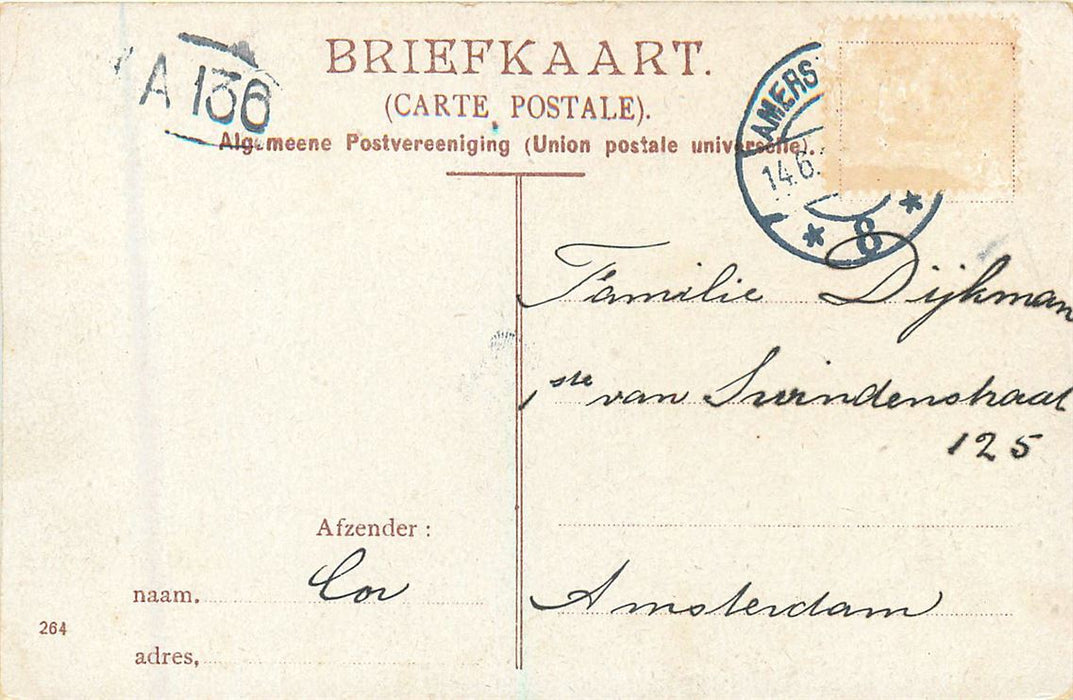 BRIEFKAART.
(CARTE POSTALE).
Algemeene Postvereeniging (Union postale universelle).
A 136
AMERS
14.6.
* 8 *
Familie Dijkman
1ste van Swindenstraat
125
Amsterdam
Afzender :
naam. Cor
adres,
264